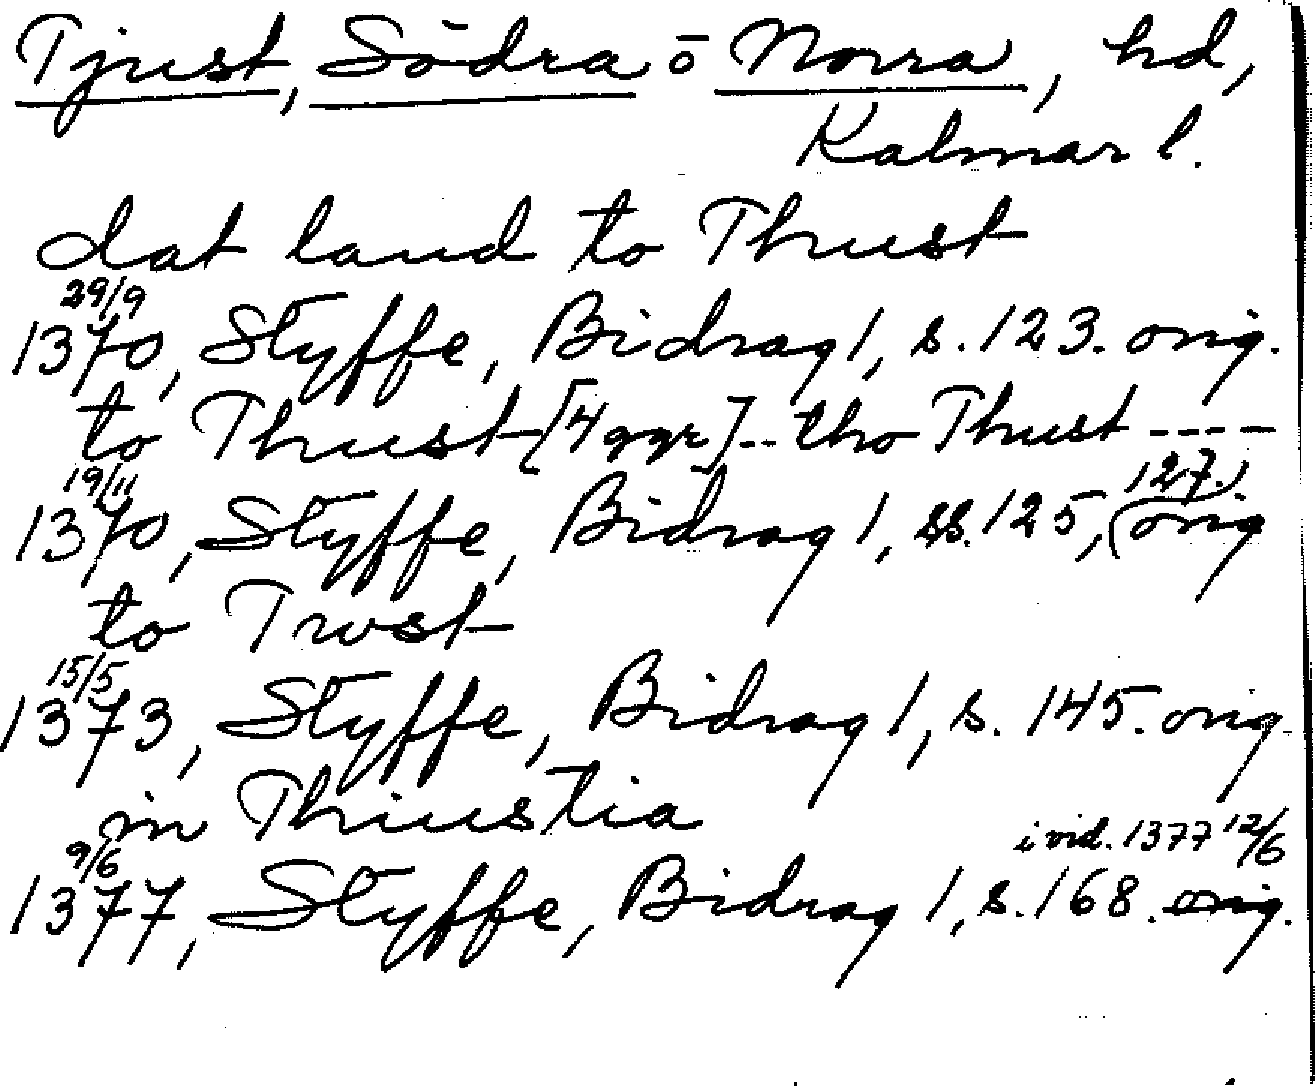 Tjust, Södra o Norra, hd,
Kalmar l.
dat land to Thust
29/9
1370, Styffe, Bidrag 1, s. 123. orig.
to Thust [4 ggr] -- tho Thust ----
19/11
1370, Styffe, Bidrag 1, ss. 125, 127. orig
to Trvst
15/5
1373, Styffe, Bidrag 1, s. 145. orig.
in Thiustia
9/6 i vid. 1377 12/6
1377, Styffe, Bidrag 1, s. 168. orig.